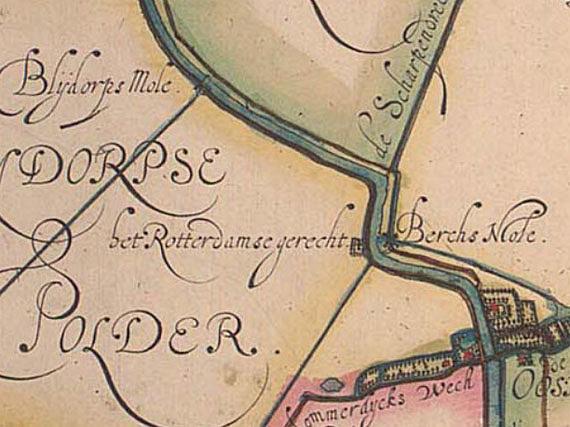 Blijdorps Mole.
de Scharpendree
DORPSE
het Rotterdamse gerecht.
Berchs Mole.
POLDER.
ommerdycks Wech
de
OOST